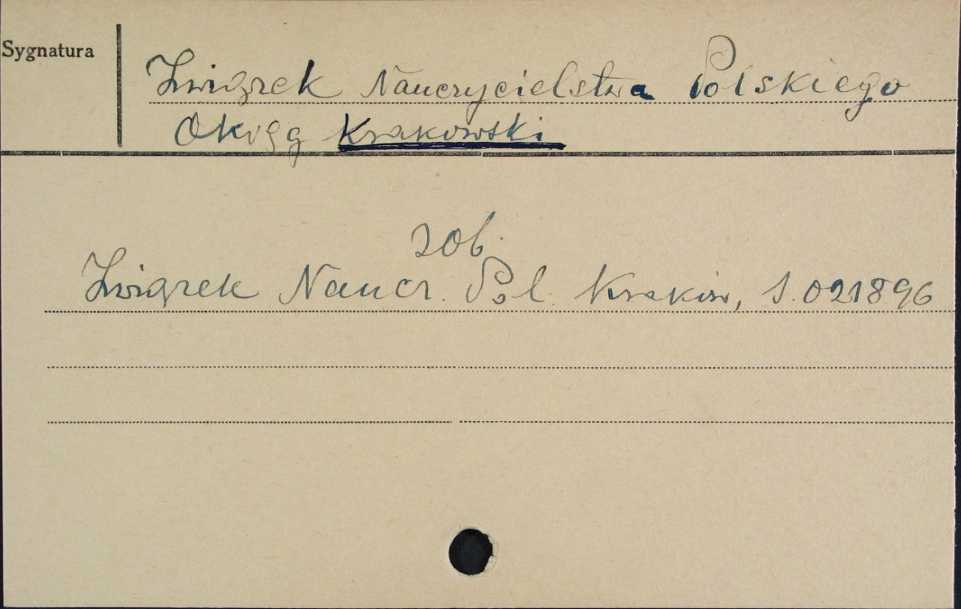 Sygnatura
Związek Nauczycielstwa Polskiego
Okręg Krakowski
zob.
Związek Naucz. Pol. Kraków, S.021896